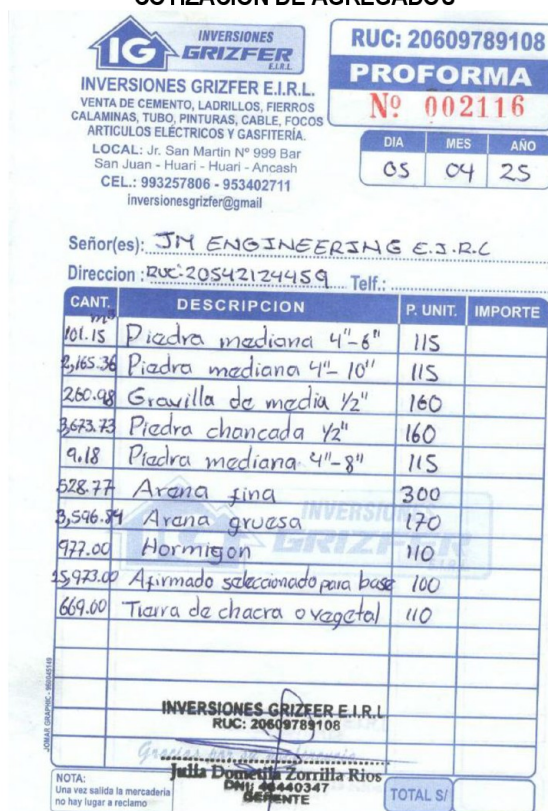 COTIZACION DE AGREGADOS
IG INVERSIONES
GRIZFER
E.I.R.L.
INVERSIONES GRIZFER E.I.R.L.
VENTA DE CEMENTO, LADRILLOS, FIERROS
CALAMINAS, TUBO, PINTURAS, CABLE, FOCOS
ARTICULOS ELÉCTRICOS Y GASFITERÍA.
LOCAL: Jr. San Martin Nº 999 Bar
San Juan - Huari - Huari - Ancash
CEL.: 993257806 - 953402711
inversionesgrizfer@gmail
RUC: 20609789108
PROFORMA
Nº 002116
DIA MES AÑO
05 04 25
Señor(es): JM ENGINEERING E.I.R.L
Direccion: RUC-20542124459 Telf.:
CANT. DESCRIPCION P. UNIT. IMPORTE
m³
101.15 Piedra mediana 4"-6" 115
2,165.36 Piedra mediana 4"-10" 115
260.98 Gravilla de media 1/2" 160
3,673.73 Piedra chancada 1/2" 160
9.18 Piedra mediana 4"-8" 115
528.77 Arena fina 300
3,596.84 Arena gruesa 170
977.00 Hormigon 110
15,973.00 Afirmado seleccionado para base 100
669.00 Tierra de chacra o vegetal 110
INVERSIONES
GRIZFER
INVERSIONES GRIZFER E.I.R.L
RUC: 20609789108
Gracias por su preferencia
Julia Dometila Zorrilla Rios
DNI: 46440347
GERENTE
NOTA:
Una vez salida la mercadería
no hay lugar a reclamo
TOTAL S/